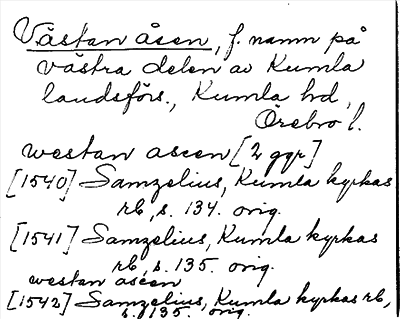 Västan åsen, f. namn på
västra delen av Kumla
landsförs., Kumla hd,
Örebro l.
westan aseen [2 ggr]
[1540] Samzelius, Kumla kyrkas
rb, s. 134. orig.
[1541] Samzelius, Kumla kyrkas
rb, s. 135. orig.
westan aseen
[1542] Samzelius, Kumla kyrkas rb,
s. 135. orig.